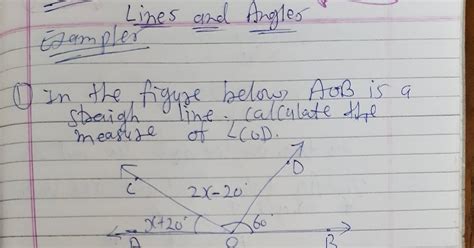 Lines and Angles
Examples
① In the figure below, AOB is a
straigh line. calculate the
measure of ∠COD.
C
D
2x-20°
x+20°
60°
A
O
B